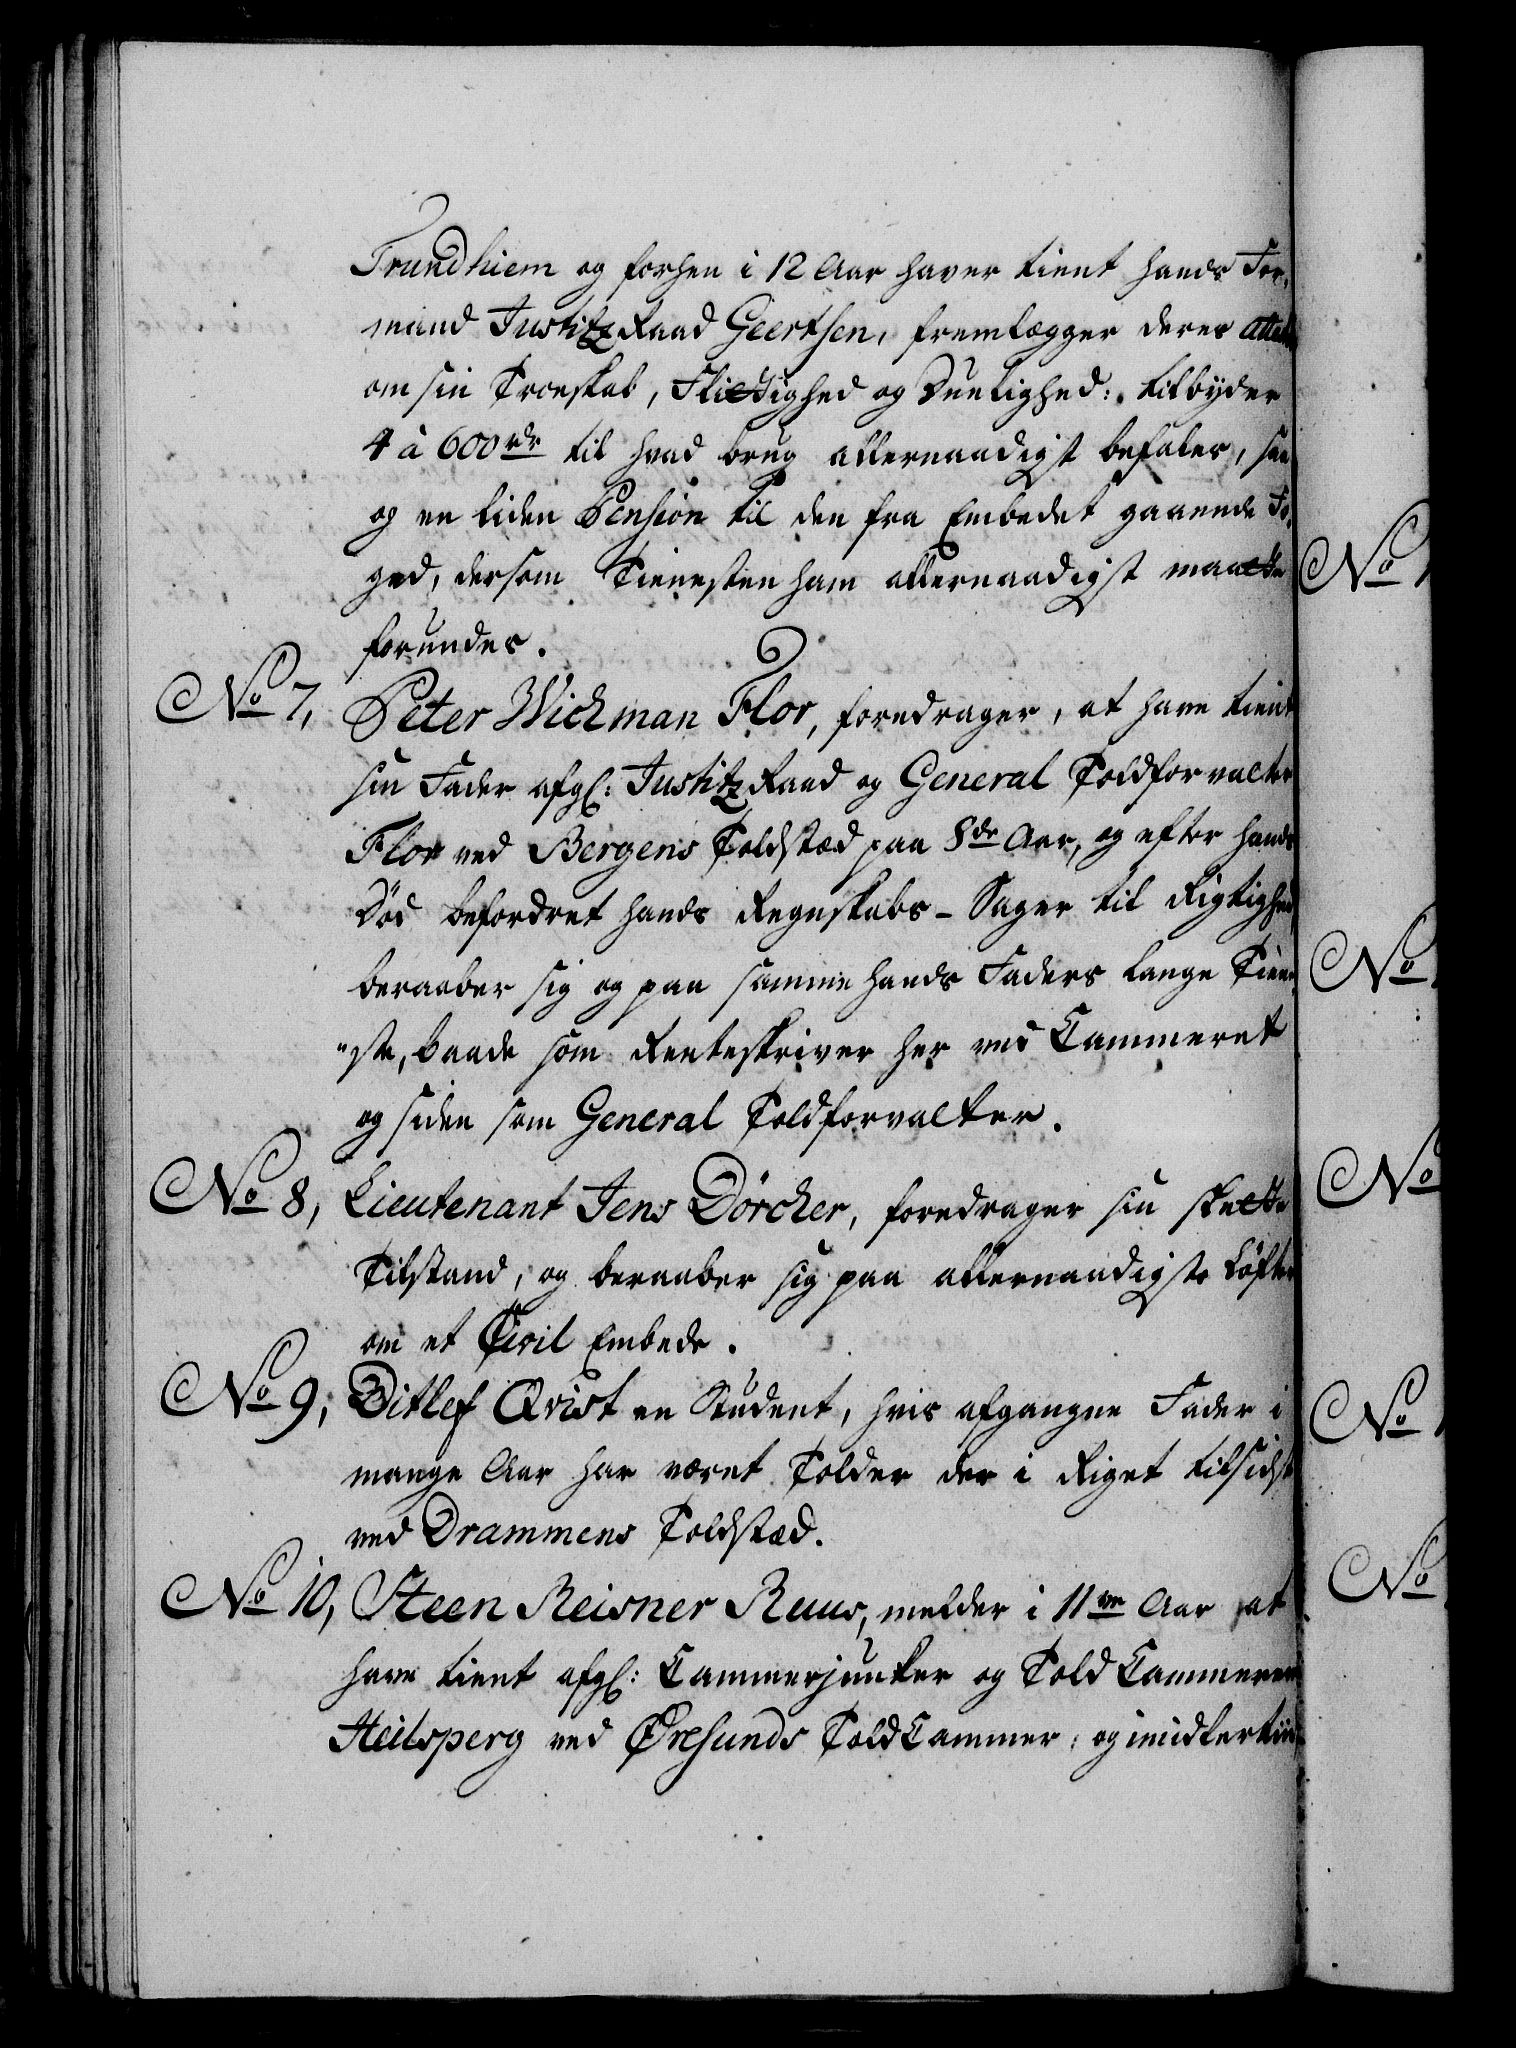 Trundhiem og forhen i 12 Aar haver tient hands For-
mand Justitz Raad Geertsen, fremlægger deres Atteste
om sin Troeskab, Flittighed og Duelighed: tilbyder
4 à 600 rdr til hvad brug allernaadigst befales, saa
og en liden Pension til den fra Embedet gaaende Fo-
ged, dersom Tienesten ham allernaadigst maatte
forundes.
No 7, Peter Wichman Flor, foredrager, at have tient
sin Fader afg: Justitz Raad og General Toldforvalter
Flor ved Bergens Toldstæd paa 8de Aar, og efter hands
Død befordret hands Regnskabs-Sager til Rigtighed,
beraaber sig og paa samme hands Faders lange Tiene-
ste, baade som Renteskriver her ved Cammeret
og siden som General Toldforvalter.
No 8, Lieutenant Jens Dörcher, foredrager sin slette
Tilstand, og beraaber sig paa allernaadigste Løfte
om et Civil Embede.
No 9, Ditlef Qvist en Student, hvis afgangne Fader i
mange Aar har været Tolder der i Riget tilsidst
ved Drammens Toldstæd.
No 10, Steen Reisner Ruus, melder i 11ve Aar at
have tient afg: Cammerjunker og Told Cammerer
Heilsperg ved Øresunds Told Cammer, og imidlertiid
No
No
No
No
No